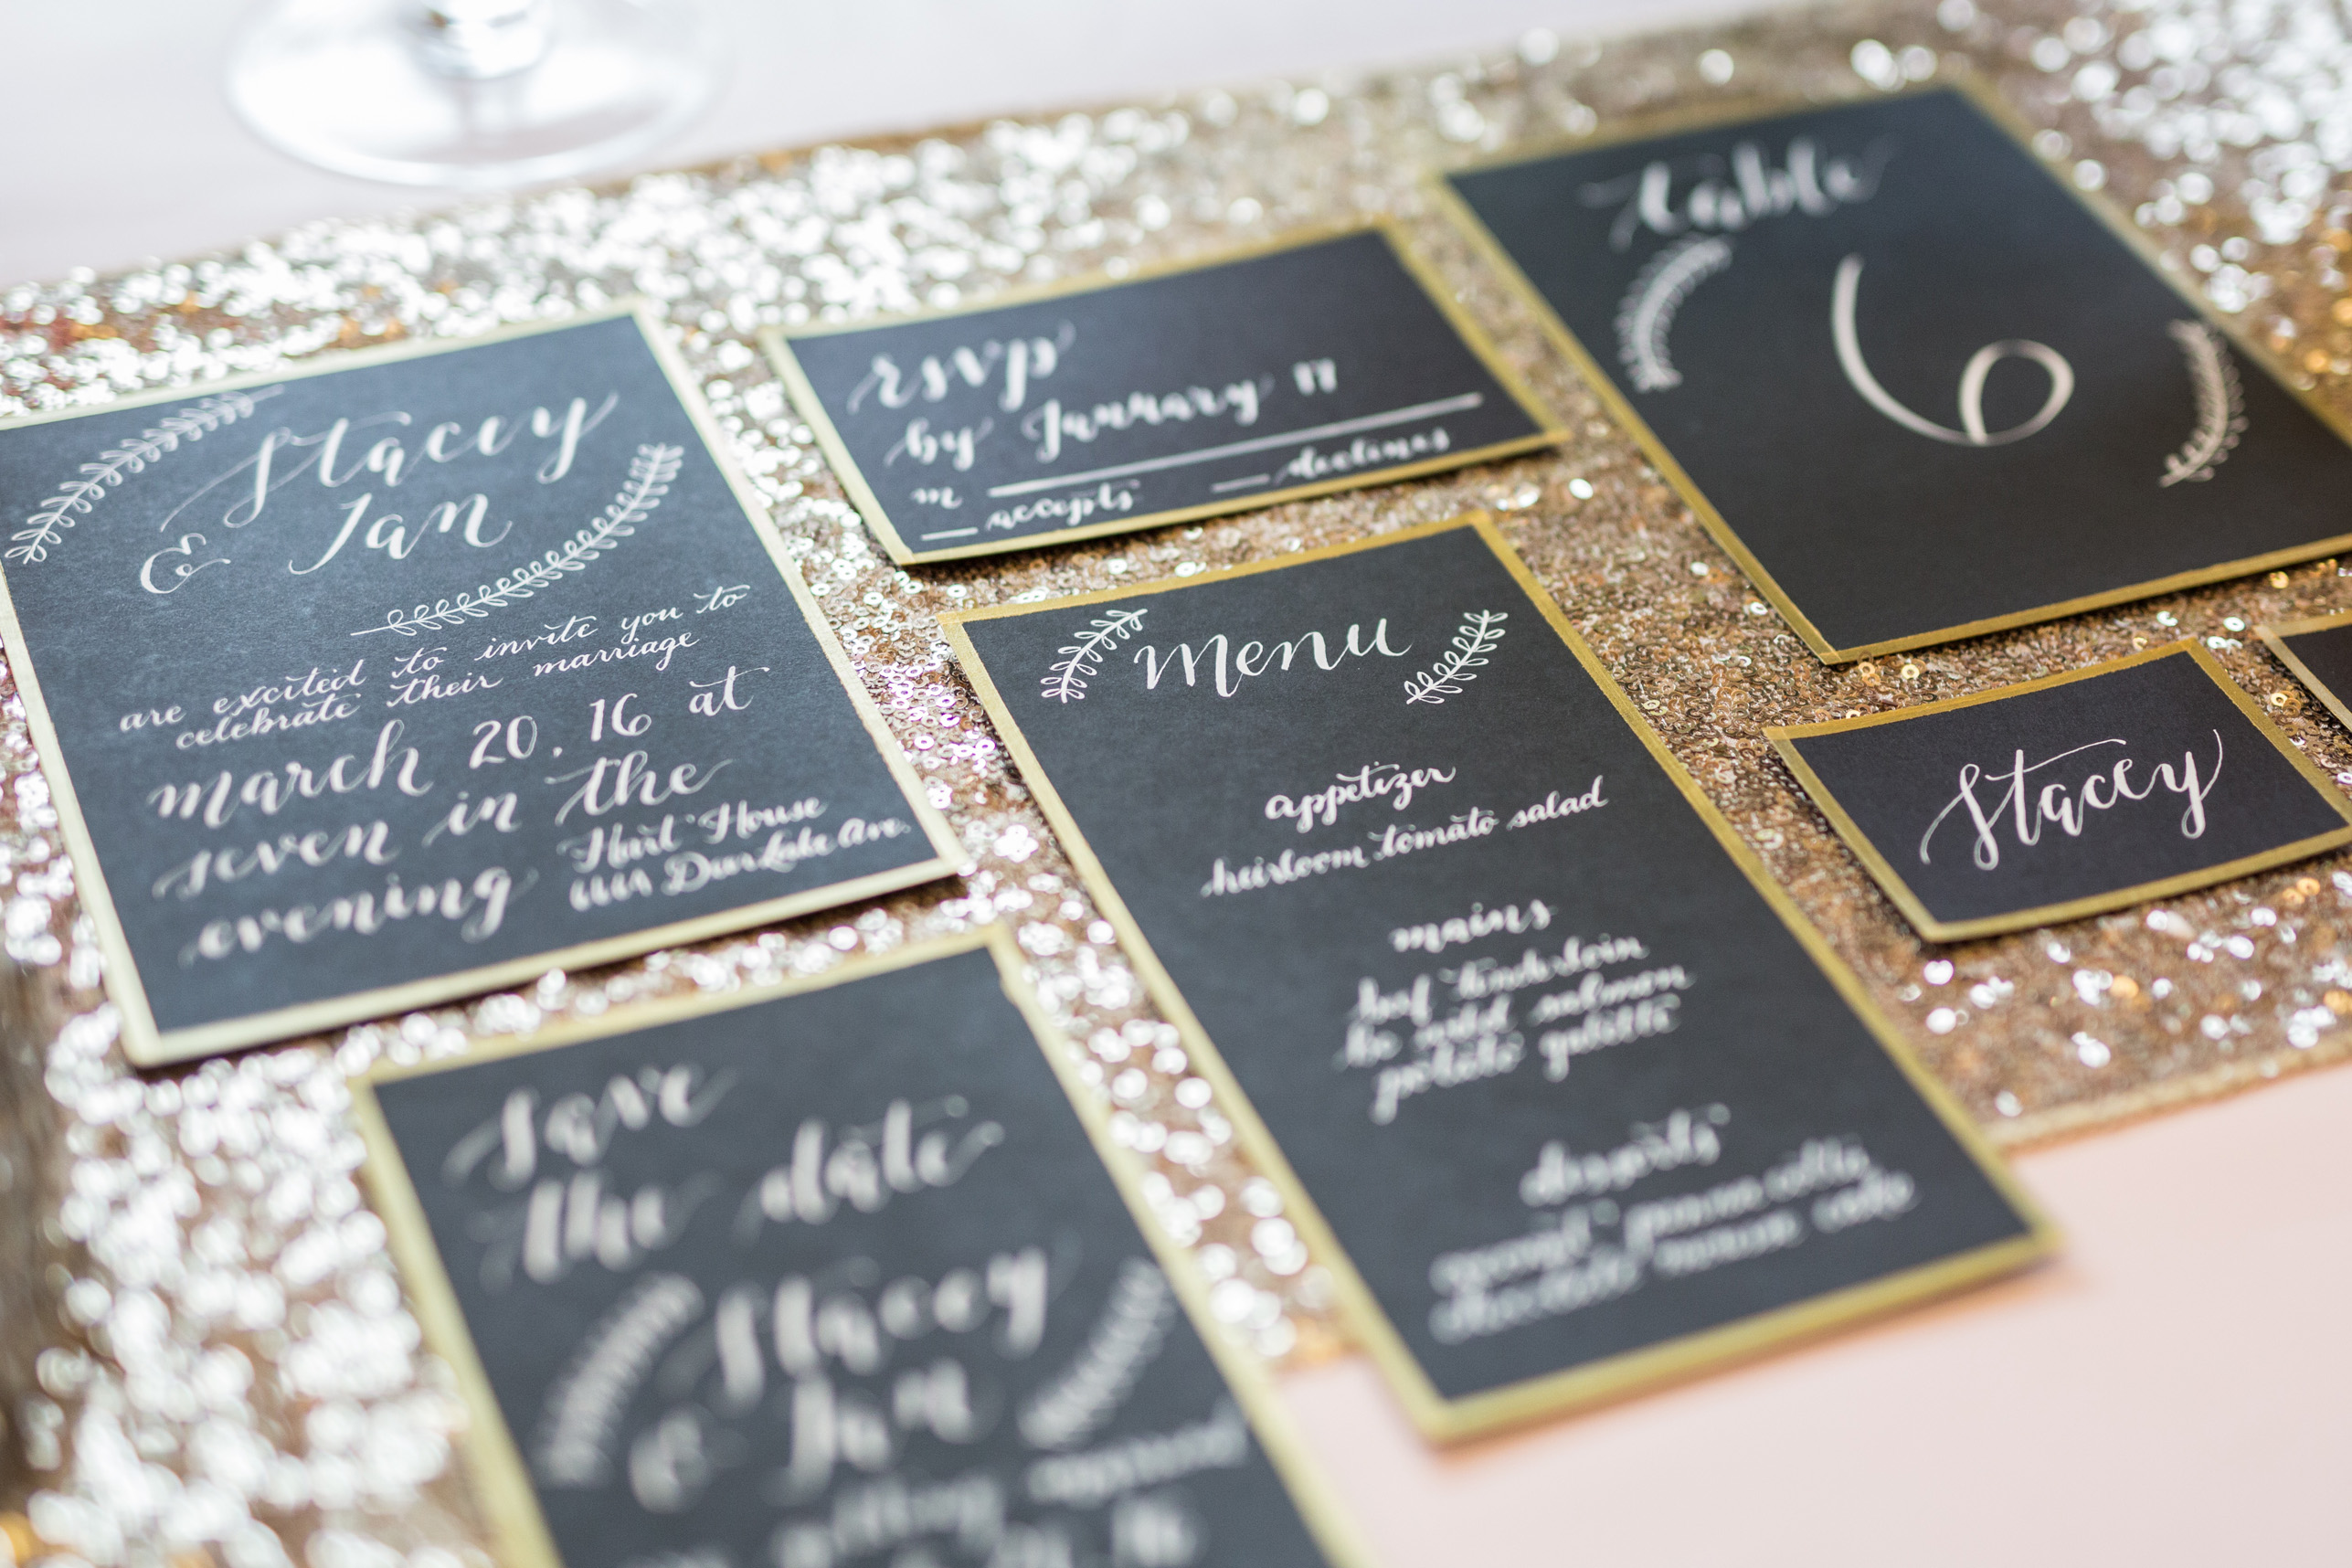 Stacey
& Ian
are excited to invite you to
celebrate their marriage
march 20.16 at
seven in the
evening
Hart House
Deer Lake Ave.
rsvp
by January 17
m
accepts declines
table
6
menu
appetizer
heirloom tomato salad
mains
beef tenderloin
bc wild salmon
potato galette
desserts
coconut panna cotta
chocolate mousse cake
Stacey
save
the date
Stacey
& Ian